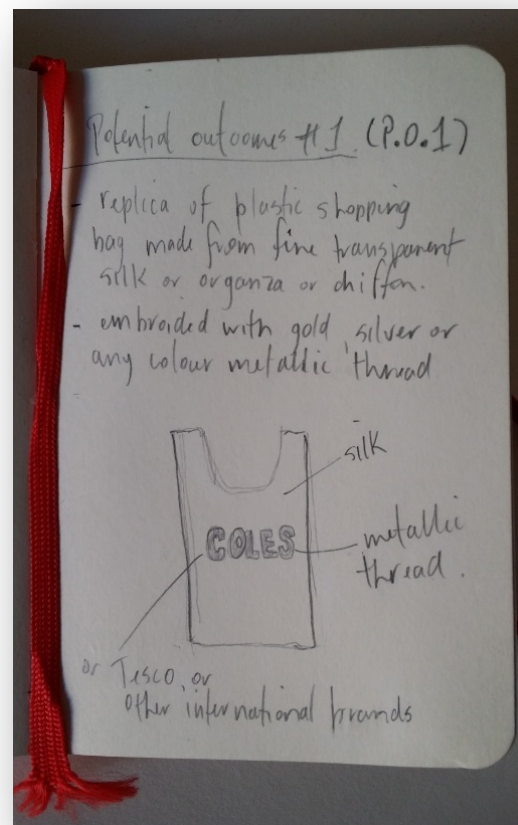 Potential outcomes #1. (P.O.1)
- replica of plastic shopping
bag made from fine transparent
silk or organza or chiffon.
- embroided with gold, silver or
any colour metallic thread
silk
COLES
metallic
thread.
or Tesco, or
other international brands